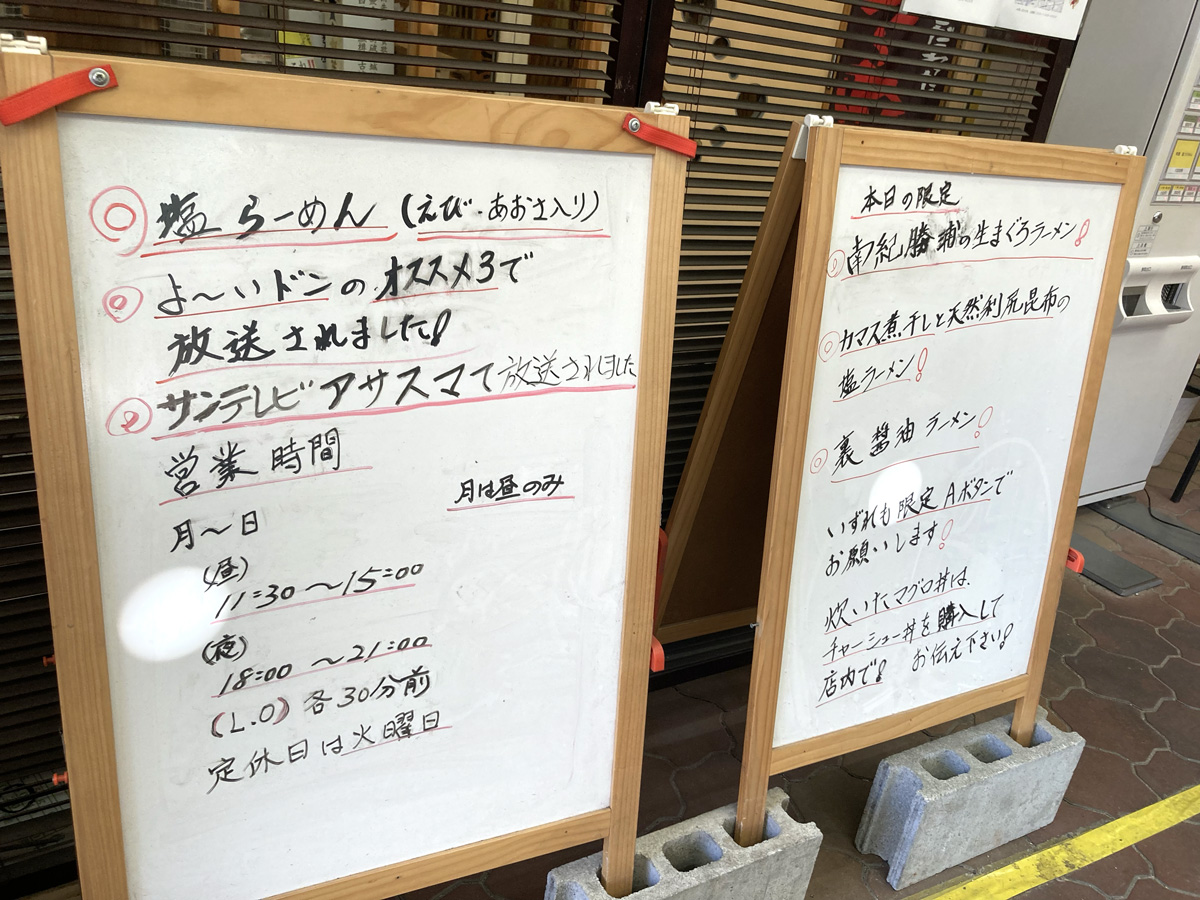 塩らーめん(えび・あおさ入り)
よ〜いドンのオススメ3で
放送されました!
サンテレビアサスマで放送されました
営業時間
月は昼のみ
月〜日
(昼)
11:30〜15:00
(夜)
18:00〜21:00
(L.O)各30分前
定休日は火曜日
本日の限定
南紀勝浦の生まぐろラーメン!
カマス煮干しと天然利尻昆布の
塩ラーメン!
裏醤油ラーメン!
いずれも限定Aボタンで
お願いします!
炊いたマグロ丼は、
チャーシュー丼を購入して
店内で! お伝え下さい!